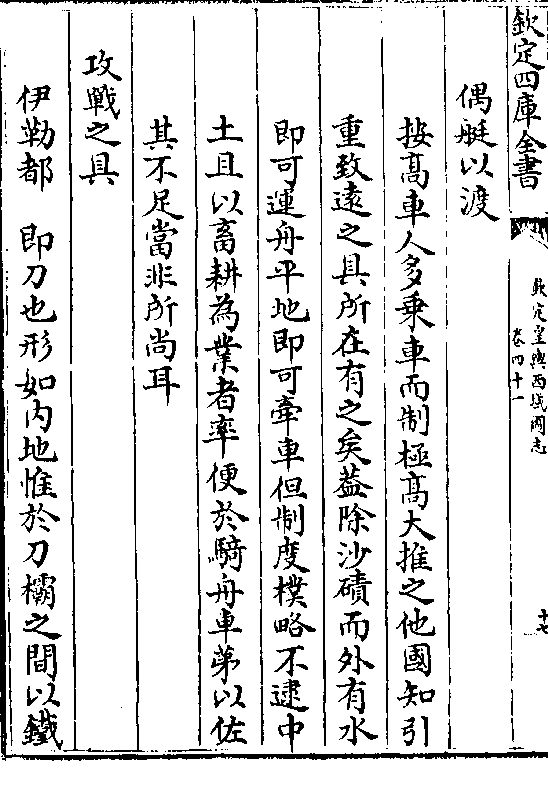 欽定四庫全書
欽定皇輿西域圖志
卷四十一
十七
偶艇以渡
按髙車人多乗車而制極髙大推之他國知引
重致逺之具所在有之矣葢除沙磧而外有水
即可運舟平地即可牽車但制度樸略不逮中
土且以畜耕為業者率便於騎舟車苐以佐
其不足當非所尚耳
攻戰之具
伊勒都　即刀也形如内地惟於刀欛之間以鐵